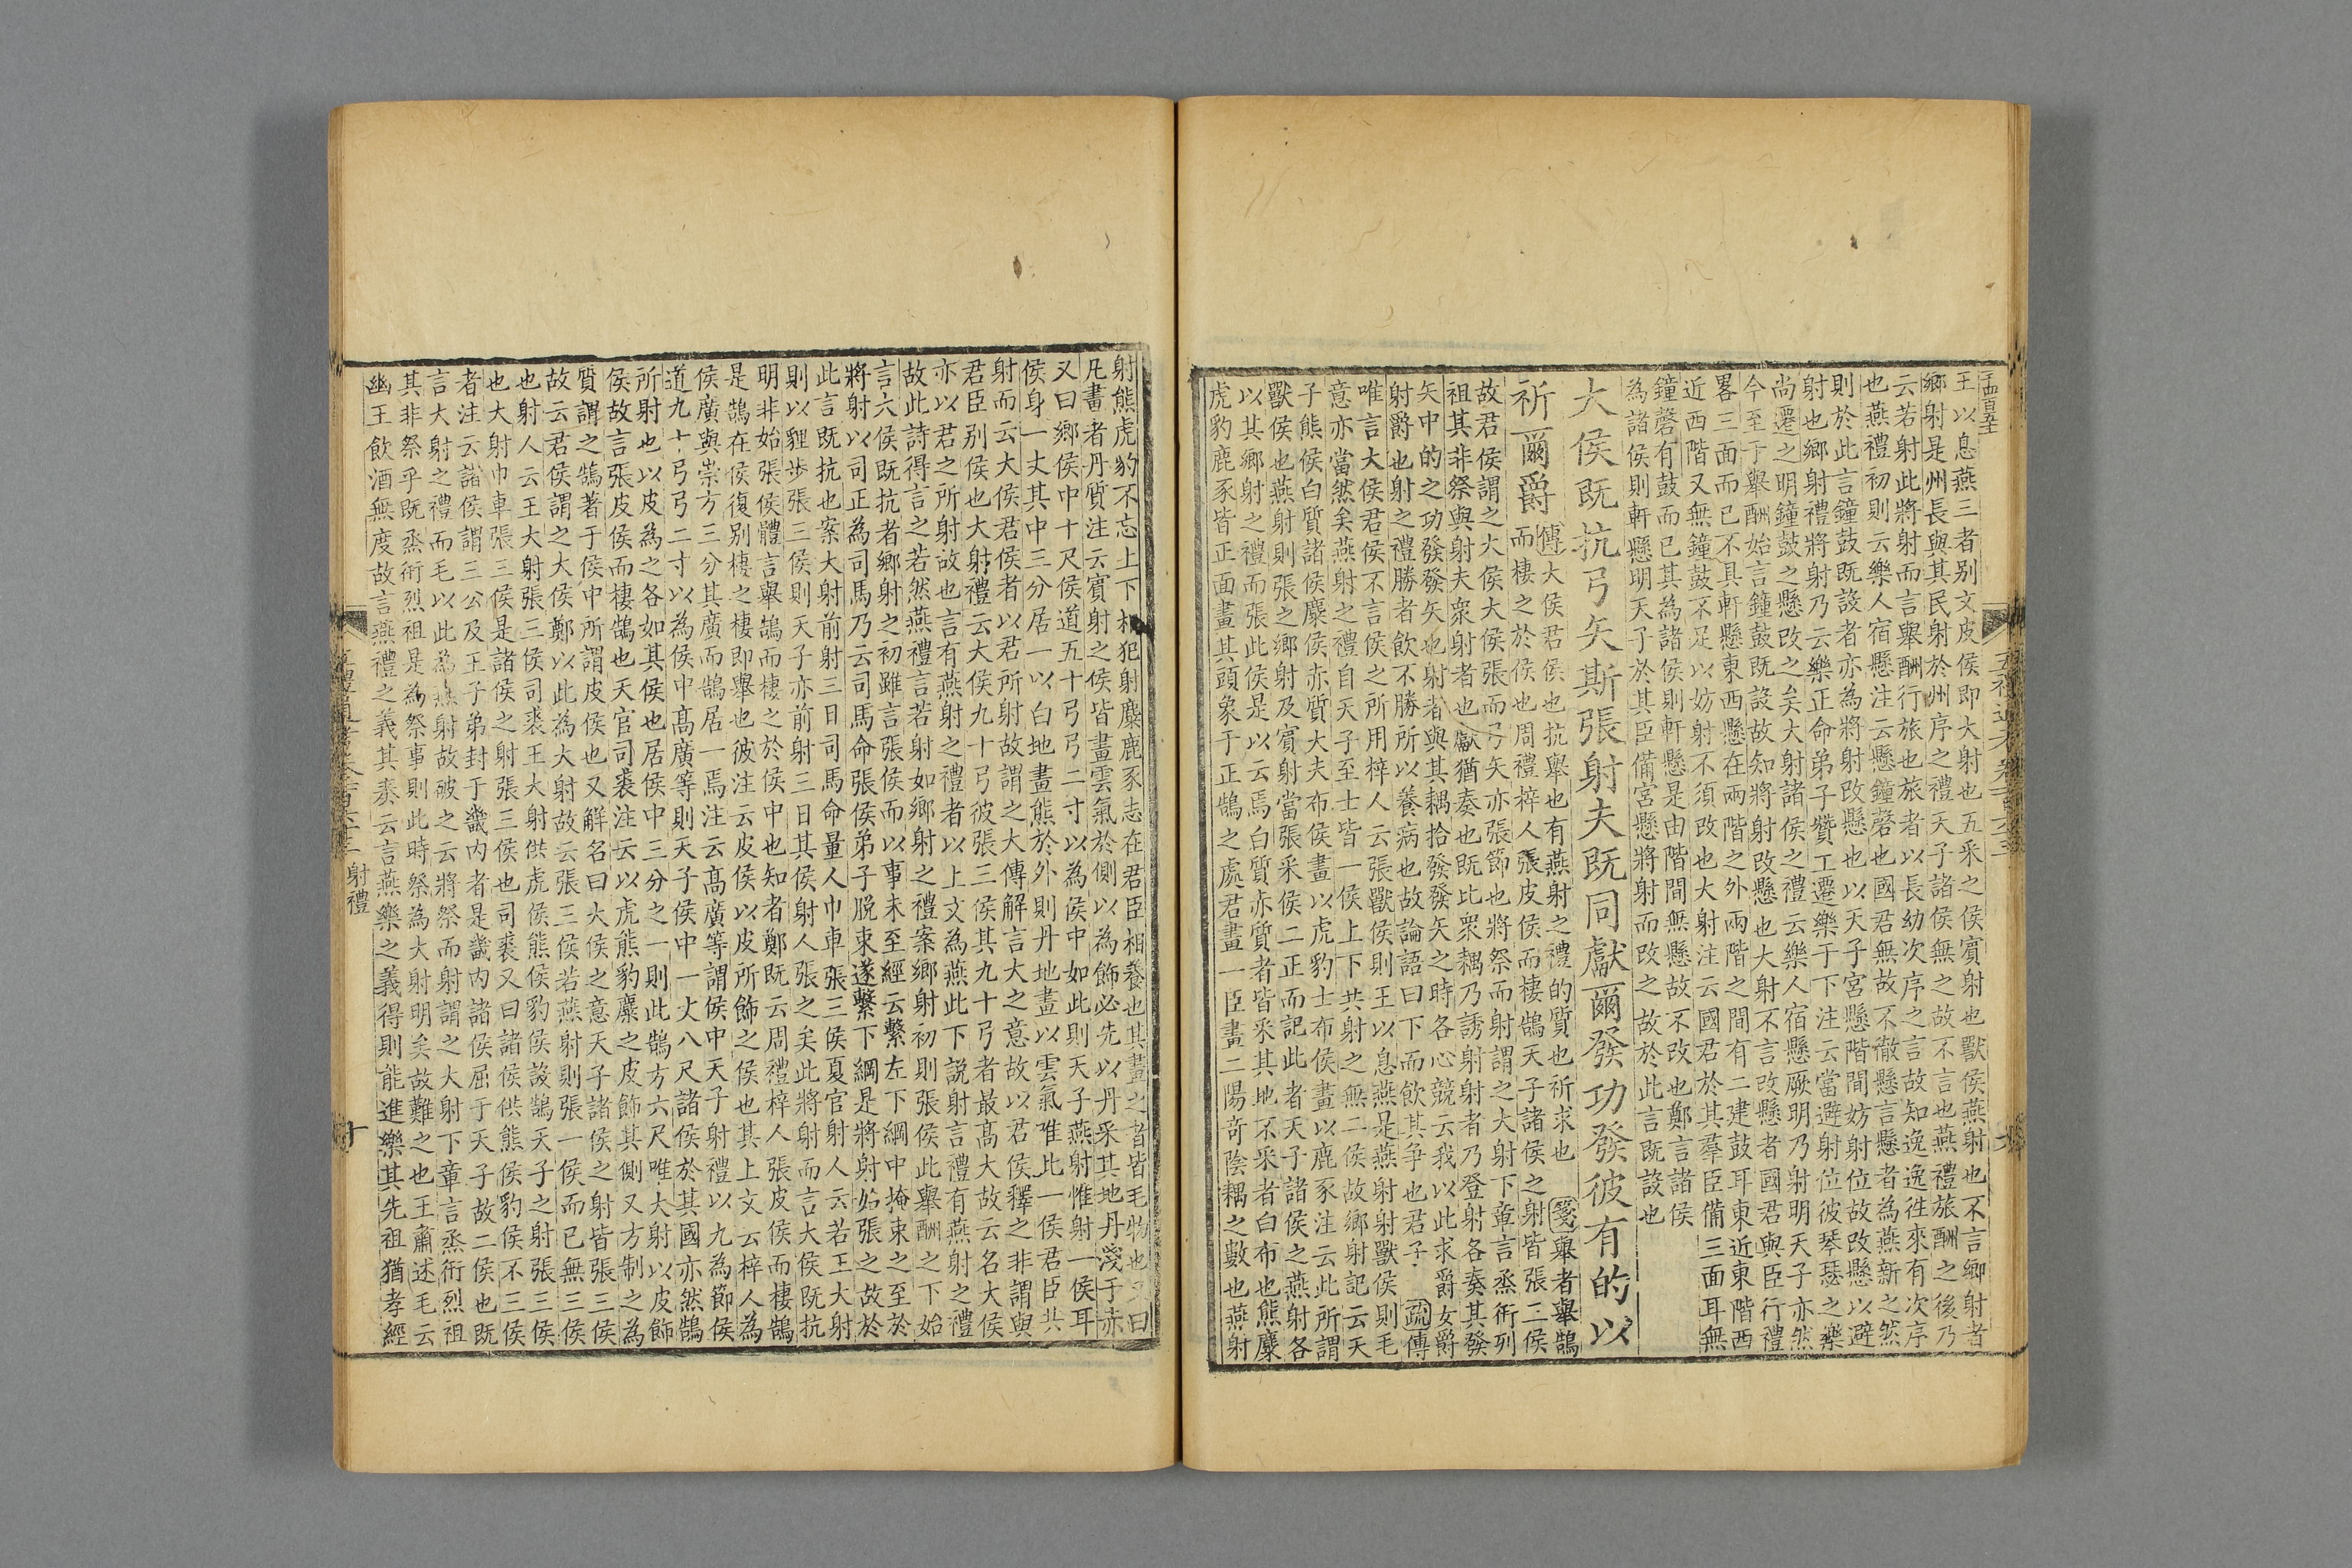 王以息燕三者別文皮侯即大射也五采之侯賓射也獸侯燕射也不言鄉射者
鄉射是州長與其民射於州序之禮天子諸侯無之故不言也燕禮旅酬之後乃
云若射此將射而言舉酬行旅也旅者以長幼次序之言故知逸逸徃來有次序
也燕禮初則云樂人宿懸注云懸鐘磬也國君無故不徹懸言懸者為燕新之然
則於此言鐘鼓既設者亦為將射改懸也以天子宮懸階間妨射位故改懸以避
射也鄉射禮將射乃云樂正命弟子贊工遷樂于下注云當避射位彼琴瑟之樂
尚遷之明鐘鼓之懸改之矣大射諸侯之禮云樂人宿懸厥明乃射明天子亦然
今至于舉酬始言鐘鼓既設故知將射改懸也大射不言改懸者國君與臣行禮
畧三面而已不具軒懸東西懸在兩階之外兩階之間有二建鼓耳東近東階西
近西階又無鐘鼓不足以妨射不須改也大射注云國君於其羣臣備三面耳無
鐘磬有鼓而已其為諸侯則軒懸是由階間無懸故不改也鄭言諸侯
為諸侯則軒懸明天子於其臣備宮懸將射而改之故於此言既設也
大侯既抗弓矢斯張射夫既同獻爾發功發彼有的以
祈爾爵
傳大侯君侯也抗舉也有燕射之禮的質也祈求也 箋舉者舉鵠
而棲之於侯也周禮梓人張皮侯而棲鵠天子諸侯之射皆張三侯
故君侯謂之大侯大侯張而弓矢亦張節也將祭而射謂之大射下章言烝衎烈
祖其非祭與射夫衆射者也獻猶奏也既比衆耦乃誘射射者乃登射各奏其發
矢中的之功發發矢也射者與其耦拾發發矢之時各心競云我以此求爵女爵
射爵也射之禮勝者飲不勝所以養病也故論語曰下而飲其争也君子 疏傳
唯言大侯君侯不言侯之所用梓人云張獸侯則王以息燕是燕射射獸侯則毛
意亦當然矣燕射之禮自天子至士皆一侯上下共射之無二侯故鄉射記云天
子熊侯白質諸侯麋侯赤質大夫布侯畫以虎豹士布侯畫以鹿豕注云此所謂
獸侯也燕射則張之鄉射及賓射當張采侯二正而記此者天子諸侯之燕射各
以其鄉射之禮而張此侯是以云焉白質赤質者皆采其地不采者白布也熊麋
虎豹鹿豕皆正面畫其頭象于正鵠之處君畫一臣畫二陽奇陰耦之數也燕射
射熊虎豹不忘上下相犯射麋鹿豕志在君臣相養也其畫之者皆毛物也又曰
凡畫者丹質注云賓射之侯皆畫雲氣於側以為飾必先以丹采其地丹淺于赤
又曰鄉侯中十尺侯道五十弓弓二寸以為侯中如此則天子燕射惟射一侯耳
侯身一丈其中三分居一以白地畫熊於外則丹地畫以雲氣唯此一侯君臣共
射而云大侯君侯者以君所射故謂之大傳解言大之意故以君侯釋之非謂與
君臣别侯也大射禮云大侯九十弓彼張三侯其九十弓者最高大故云名大侯
亦以君之所射故也言有燕射之禮者以上文為燕此下説射言禮有燕射之禮
故此詩得言之若然燕禮言若射如鄉射之禮案鄉射初則張侯此舉酬之下始
言六侯既抗者鄉射之初雖言張侯而以事未至經云繫左下綱中掩束之至於
將射以司正為司馬乃云司馬命張侯弟子脱束遂繫下綱是將射始張之故於
此言既抗也案大射前射三日司馬命量人巾車張三侯夏官射人云若王大射
則以貍步張三侯則天子亦前射三日其侯射人張之矣此將射而言大侯既抗
明非始張侯體言舉鵠而棲之於侯中也知者鄭既云周禮梓人張皮侯而棲鵠
是鵠在侯復别棲之棲即舉也彼注云皮侯以皮所飾之侯也其上文云梓人為
侯廣與崇方三分其廣而鵠居一焉注云高廣等謂侯中天子射禮以九為節侯
道九十弓弓二寸以為侯中高廣等則天子侯中一丈八尺諸侯於其國亦然鵠
所射也以皮為之各如其侯也居侯中三分之一則此鵠方六尺唯大射以皮飾
侯故言張皮侯而棲鵠也天官司裘注云以虎熊豹麋之皮飾其側又方制之為
質謂之鵠著于侯中所謂皮侯也又解名曰大侯之意天子諸侯之射皆張三侯
故云君侯謂之大侯鄭以此為大射故云張三侯若燕射則張一侯而已無三侯
也射人云王大射張三侯司裘王大射供虎侯熊侯豹侯設鵠天子之射張三侯
也大射巾車張三侯是諸侯之射張三侯也司裘又曰諸侯供熊侯豹侯不三侯
者注云諸侯謂三公及王子弟封于畿内者是畿内諸侯屈于天子故二侯也既
言大射之禮而毛以此為燕射故破之云將祭而射謂之大射下章言烝衎烈祖
其非祭乎既烝衎烈祖是為祭事則此時祭為大射明矣故難之也王肅述毛云
幽王飲酒無度故言燕禮之義其奏云言燕樂之義得則能進樂其先祖猶孝經
射禮
十